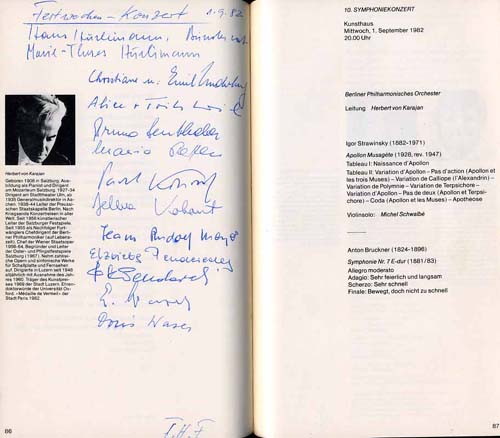 Festwochen-Konzert 1.9.82
Hans Hürlimann,
Marie-Theres Hürlimann
Christiane u. Emil
Alice + Fritz
Bruno
Maria
Paul
Team Rudolf
Doris Naser
Herbert von Karajan
Geboren 1908 in Salzburg. Aus-
bildung als Pianist und Dirigent
am Mozarteum Salzburg. 1927–34
Dirigent am Stadttheater Ulm, ab
1935 Generalmusikdirektor in Aa-
chen. 1938–44 Leiter der Preussi-
schen Staatskapelle Berlin. Nach
Kriegsende Konzertreisen in aller
Welt. Seit 1956 künstlerischer
Leiter der Salzburger Festspiele.
Seit 1955 als Nachfolger Furt-
wänglers Chefdirigent der Berli-
ner Philharmoniker (auf Lebens-
zeit). Chef der Wiener Staatsoper
1956–64. Begründer und Leiter
der Oster- und Pfingstfestspiele
Salzburg (1967). Nahm zahlrei-
che Opern und sinfonische Werke
für Schallplatte und Fernsehen
auf. Dirigierte in Luzern seit 1948
alljährlich mit Ausnahme des Jah-
res 1960. Träger des Kunstpreises
1969 der Stadt Luzern. Ehren-
doktorwürde der Universität Ox-
ford. «Médaille de Vermeil» der
Stadt Paris 1982.
86
10. SYMPHONIEKONZERT
Kunsthaus
Mittwoch, 1. September 1982
20.00 Uhr
Berliner Philharmonisches Orchester
Leitung Herbert von Karajan
Igor Strawinsky (1882-1971)
Apollon Musagète (1928, rev. 1947)
Tableau I: Naissance d'Apollon
Tableau II: Variation d'Apollon – Pas d'action (Apollon et
les trois Muses) – Variation de Calliope (l'Alexandrin) –
Variation de Polymnie – Variation de Terpsichore –
Variation d'Apollon – Pas de deux (Apollon et Terpsi-
chore) – Coda (Apollon et les Muses) – Apothéose
Violinsolo: Michel Schwalbé
Anton Bruckner (1824-1896)
Symphonie Nr. 7 E-dur (1881/83)
Allegro moderato
Adagio: Sehr feierlich und langsam
Scherzo: Sehr schnell
Finale: Bewegt, doch nicht zu schnell
87